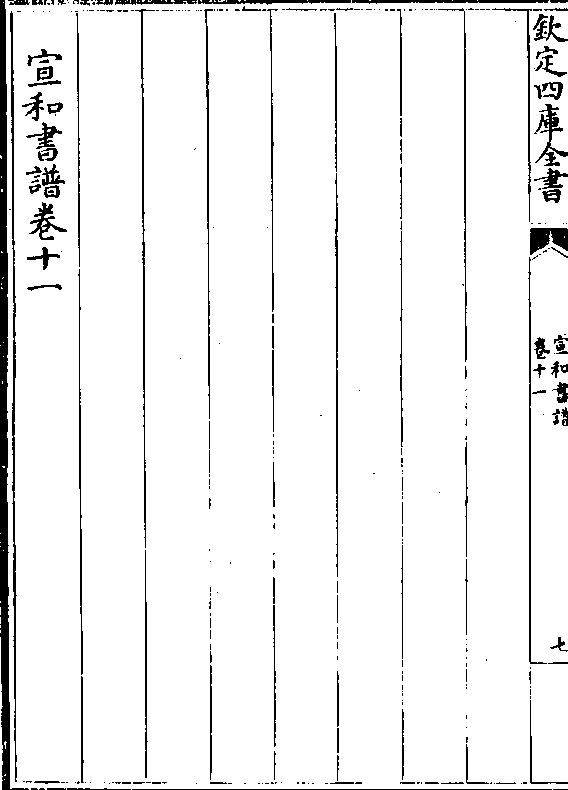 欽定四庫全書
宣和書譜
卷十一
七
宣和書譜卷十一